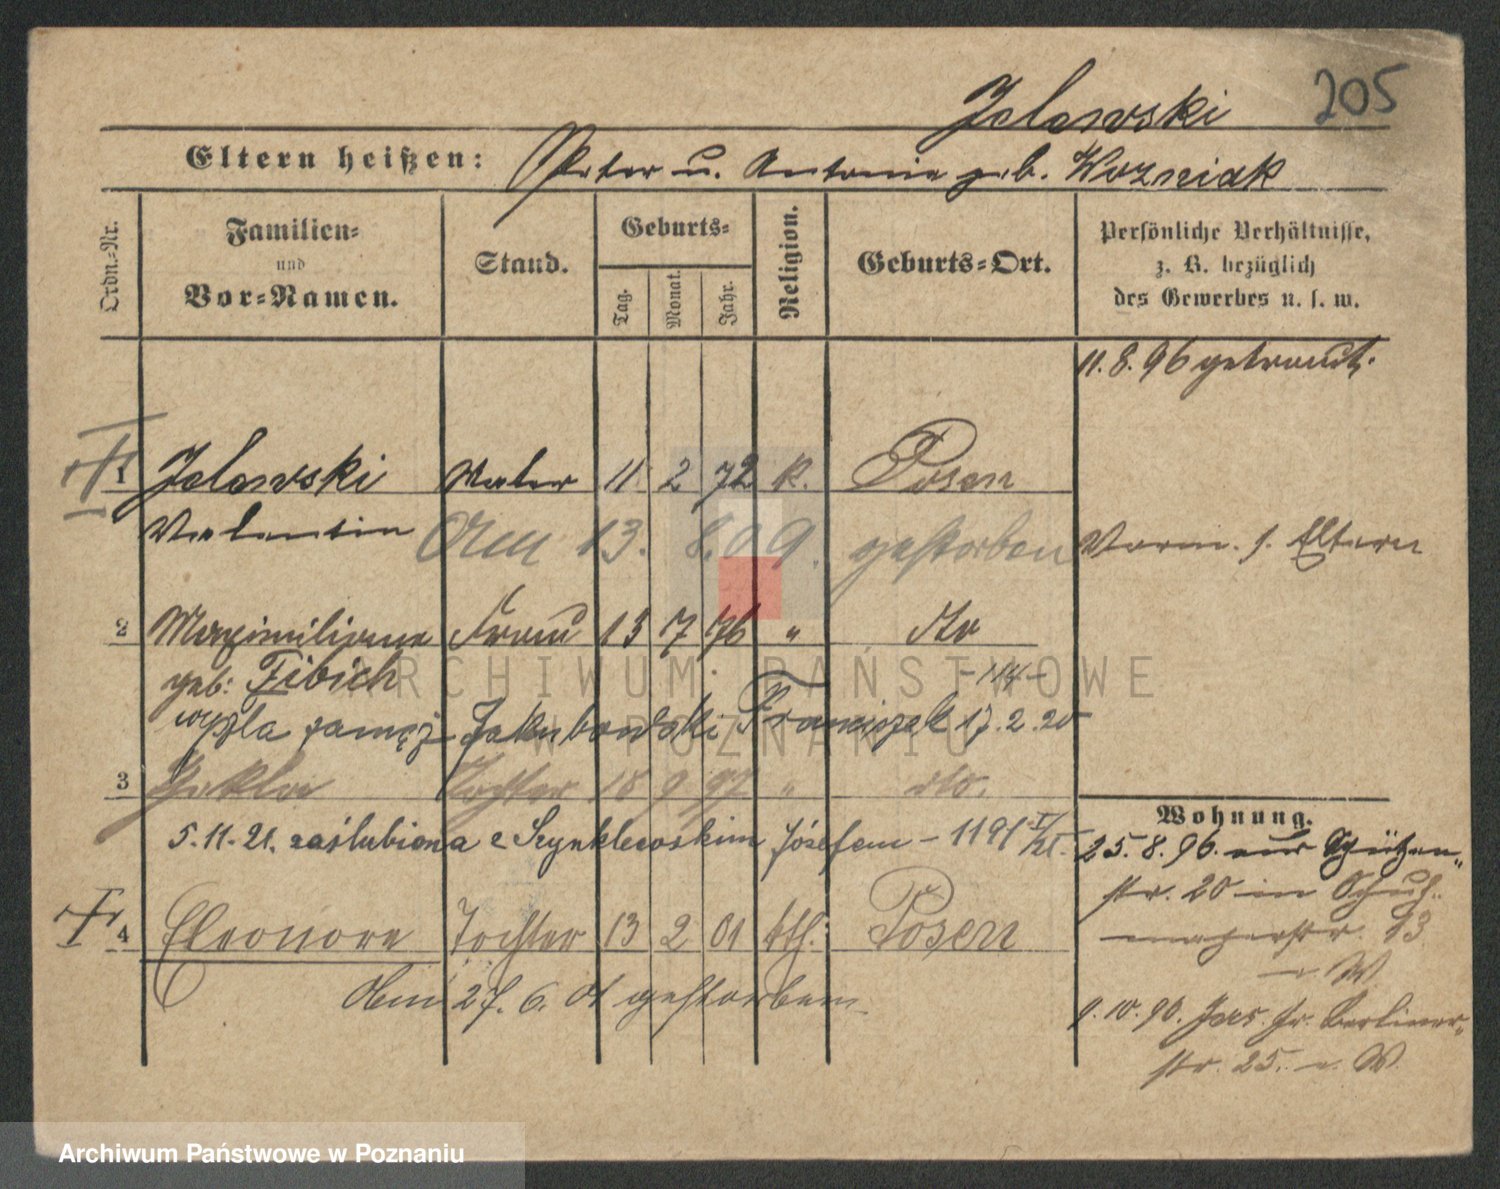 205
Jalowski
Eltern heißen: Peter u. Antonie geb. Wozniak
Ordn.-Nr.
Familien-
und
Vor-Namen.
Stand.
Geburts-
Tag.
Monat.
Jahr.
Religion.
Geburts-Ort.
Persönliche Verhältnisse,
z. B. bezüglich
des Gewerbes u. s. w.
11.8.96 getraut.
1 Jalowski 11 2 72 k. Posen
Valentin
Am 13. 8. 09. gestorben
Vorm. s. Eltern
2 Maximiliane Frau 13 7 76 " dto
geb: Fibich
wyszła zamęż Jakubowski Franciszek 17.2.20
3 Thekla Tochter 18 9 97 " dto.
5.11.21. zaślubiona z Szynklewskim Józefem - 1191
4 Eleonore Tochter 13 2 01 kth. Posen
Am 27. 6. 01 gestorben
Wohnung.
25.8.96. aus Schützen-
str. 20 in Schuh-
macherstr. 13
n. W.
9.10.96. Berliner-
str. 25. n. W.
ARCHIWUM PAŃSTWOWE
W POZNANIU
Archiwum Państwowe w Poznaniu